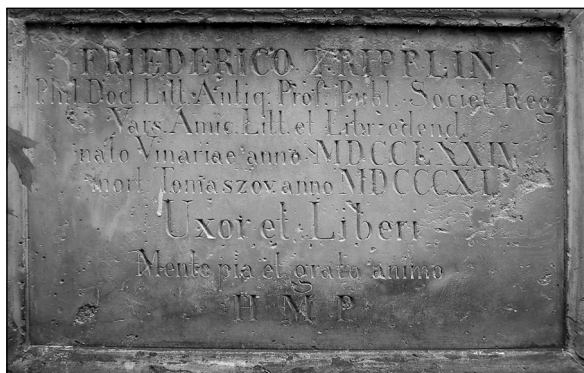 FRIEDERICO TRIPPLIN
Phil. Doct. Litt. Antiq. Prof. Publ. Societ. Reg.
Vars. Amic. Litt. et Libr. edend.
nato Vinariae anno MDCCLXXIV
mort. Tomaszov. anno MDCCCXL
Uxor et Liberi
Mente pia et grato animo
H M P